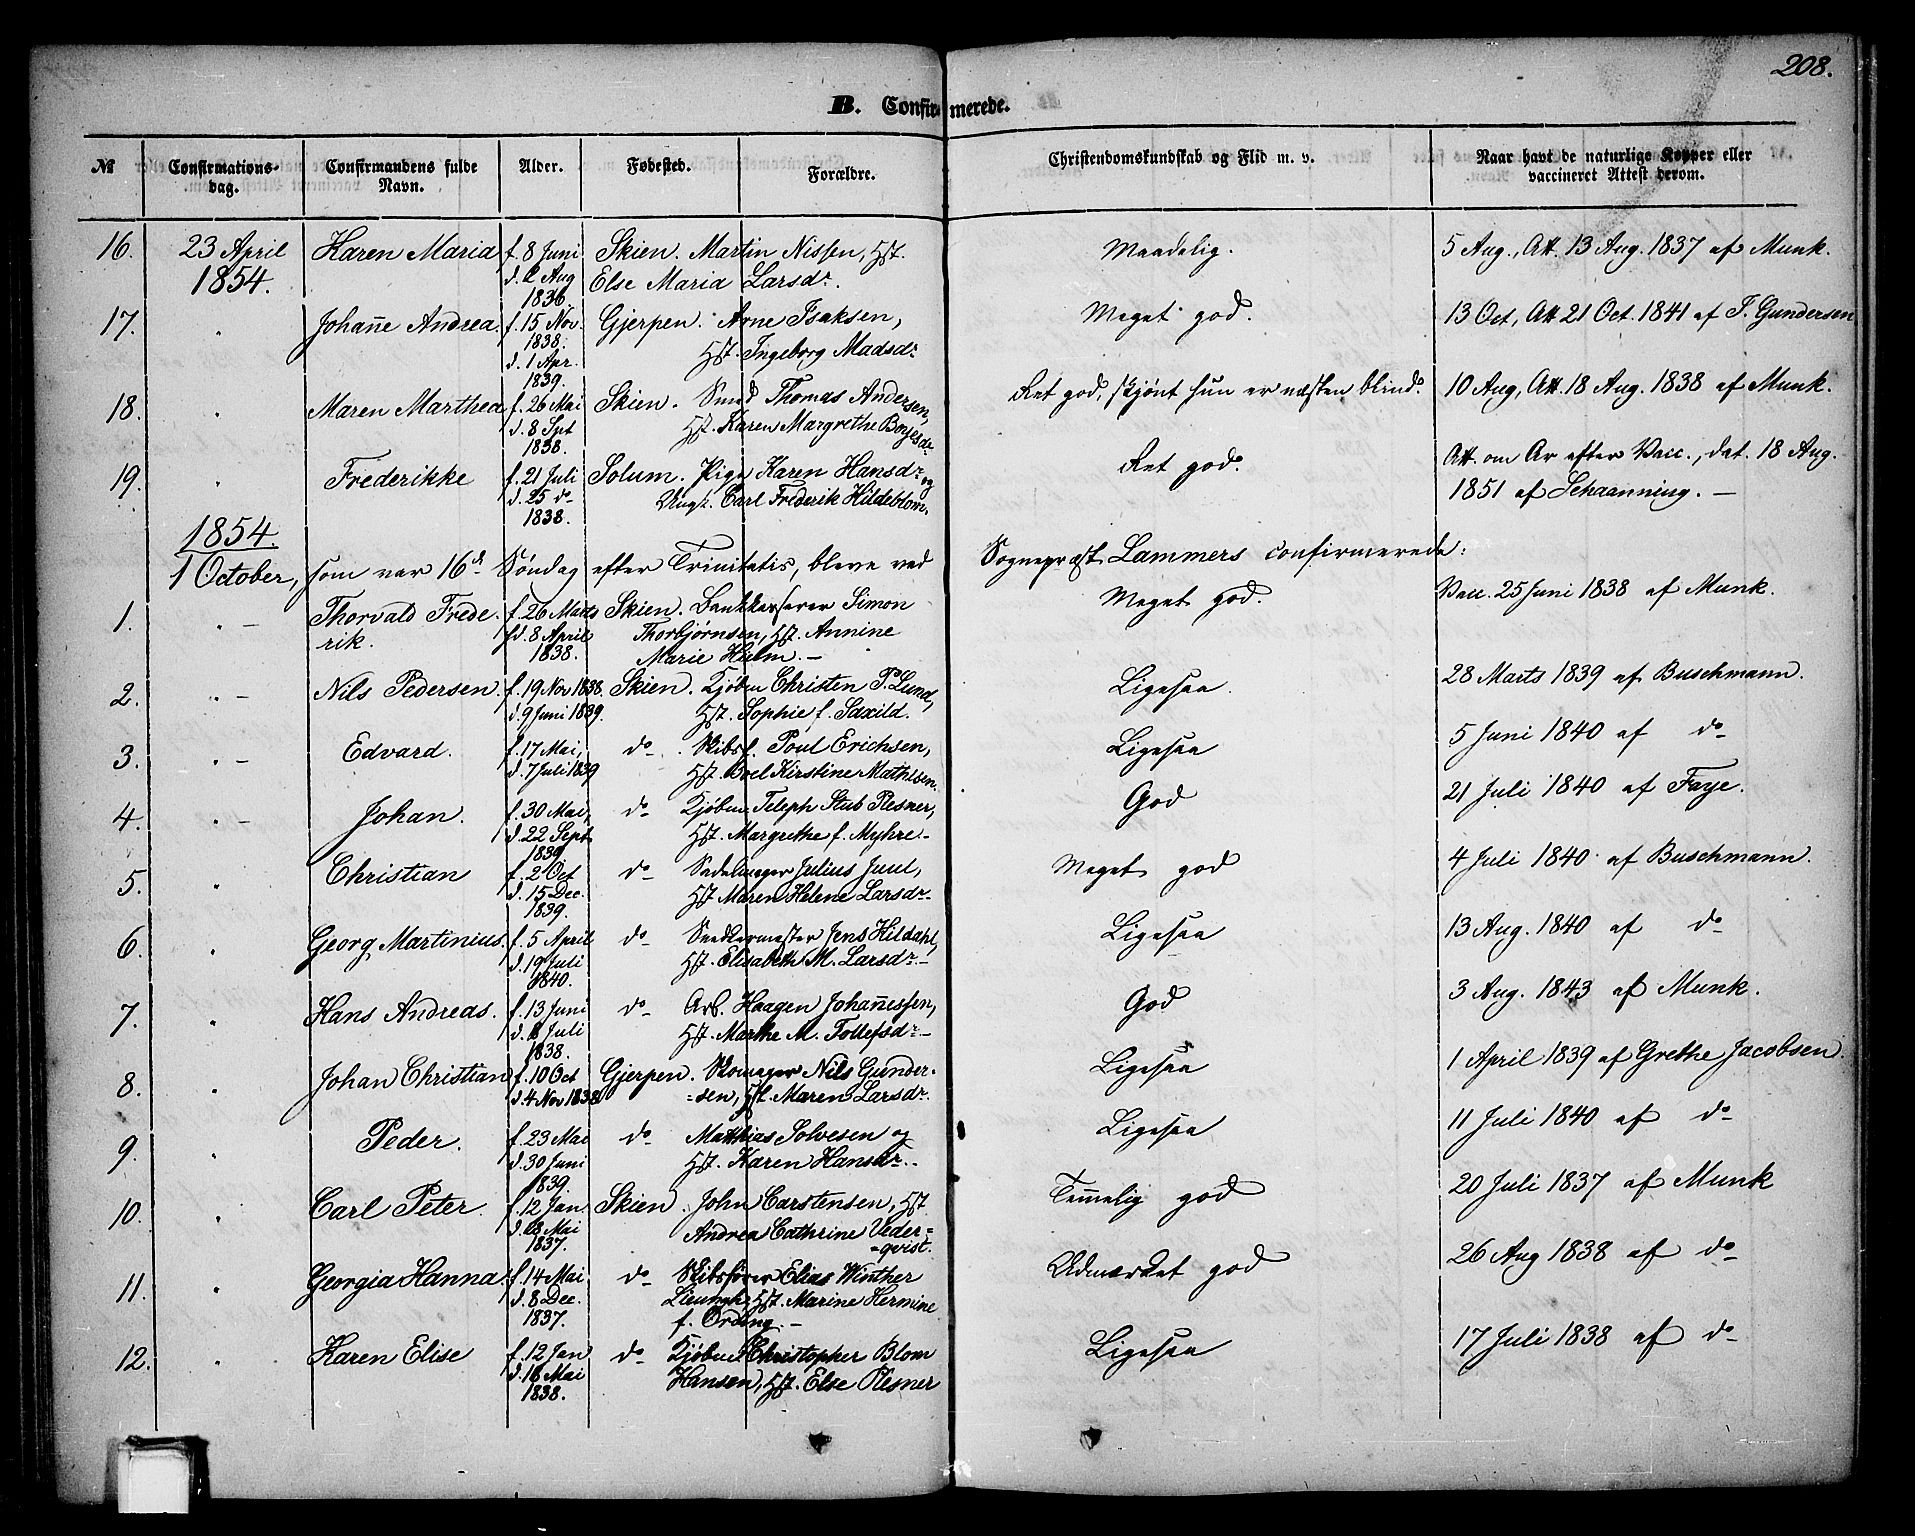 208.
B. Confirmerede.
№ Confirmations-dag. Confirmandens fulde Navn. Alder. Fødested. Forældre. Christendomskundskab og Flid m. v. Naar havt de naturlige Kopper eller vaccineret Attest derom.
16. 23 April Karen Maria f. 8 Juni Skien. Martin Nissen, Hst. Maadelig. 5 Aug., Att. 13 Aug. 1837 af Munk.
1854. d. Aug Else Maria Larsdr.
1836
17. " Johan̄e Andrea. f. 15 Nov. Gjerpen. Arne Isaksen, Meget god. 13 Oct, Att. 21 Oct. 1841 af T. Gundersen
1838. Hst. Ingeborg Madsdr
d. 1 Apr.
1839.
18. " Maren Marthea f. 26 Mai Skien. Smed Thomas Andersen, Ret god, skjønt hun er næsten blind. 10 Aug, Att. 18 Aug. 1838 af Munk.
d. 8 Spt Hst. Karen Margrethe Boyesdr
1838.
19. " Frederikke f. 21 Juli Solum. Pige Karen Hansdr og Ret god. Att. om Ar efter Vacc., dat. 18 Aug.
d. 25 do Ungk. Carl Frederik Hildeblom. 1851 af Schaanning. —
1838.
1854.
1 October, som var 16d Søndag efter Trinitatis, bleve ved Sognepræst Lammers confirmerede:
1. " — Thorvald Frede- f. 26 Marts Skien. Simon Meget god. Vacc. 25 Juni 1838 af Munk.
rik. d. 8 April Thorbjørnsen, Hst. Annine
1838. Marie Holm. —
2. " — Nils Pedersen. f. 19 Nov 1838. Skien. Kjøbm Christen P. Lund, Ligesaa. 28 Marts 1839 af Buschmann.
d. 9 Juni 1839. Hst. Sophie f. Saxild.
3. " — Edvard. f. 17 Mai, do Skibsf. Poul Erichsen, Ligesaa 5 Juni 1840 af do
d. 7 Juli 1839 Hst. Boel Kirstine Mathisen.
4. " — Johan. f. 30 Mai, do Kjøbm Teleph Stub Plesner, God 21 Juli 1840 af Faye.
d. 22 Sept Hst. Margrethe f. Myhre
1839
5. " Christian f. 2 Oct do Sadelmager Julius Juul, Meget god 4 Juli 1840 af Buschmann.
d. 15 Dec. Hst. Maren Helene Larsdr
1839.
6. " Georg Martinius. f. 5 April do Snedkermester Jens Hildahl, Ligesaa 13 Aug. 1840 af do
d. 19 Juli Hst. Elisabeth M. Larsdr
1840.
7. " Hans Andreas. f. 13 Juni do Arb. Haagen Johan̄essen, God 3 Aug. 1843 af Munk.
d. 8 Juli Hst. Marthe M. Tollefsdr
1838.
8. " Johan Christian f. 10 Oct Gjerpen. Skomager Nils Gunder- Ligesaa 1 April 1839 af Grethe Jacobsen.
d. 4 Nov 1838 =sen, Hst. Maren Larsdr.
9. " Peder. f. 23 Mai do Matthias Solvesen og Ligesaa 11 Juli 1840 af do
d. 30 Juni Hst. Karen Hansdr.
1839
10. " Carl Peter. f. 12 Jan. Skien. John Carstensen, Hst. Tem̄elig god 20 Juli 1837 af Munk
d. Mai Andrea Cathrine Veder=
1837. =qvist.
11. " Georgia Hanna. f. 14 Mai do Skibsfører Elias Winther Udmærket god 26 Aug 1838 af do
d. 8 Dec. Lieungh, Hst. Marine Hermine
1837. f. Ording. —
12. " Karen Elise f. 12 Jan do Kjøbm Christopher Blom Ligesaa 17 Juli 1838 af do
d. 16 Mai Hansen, Hst. Else Plesner
1838.